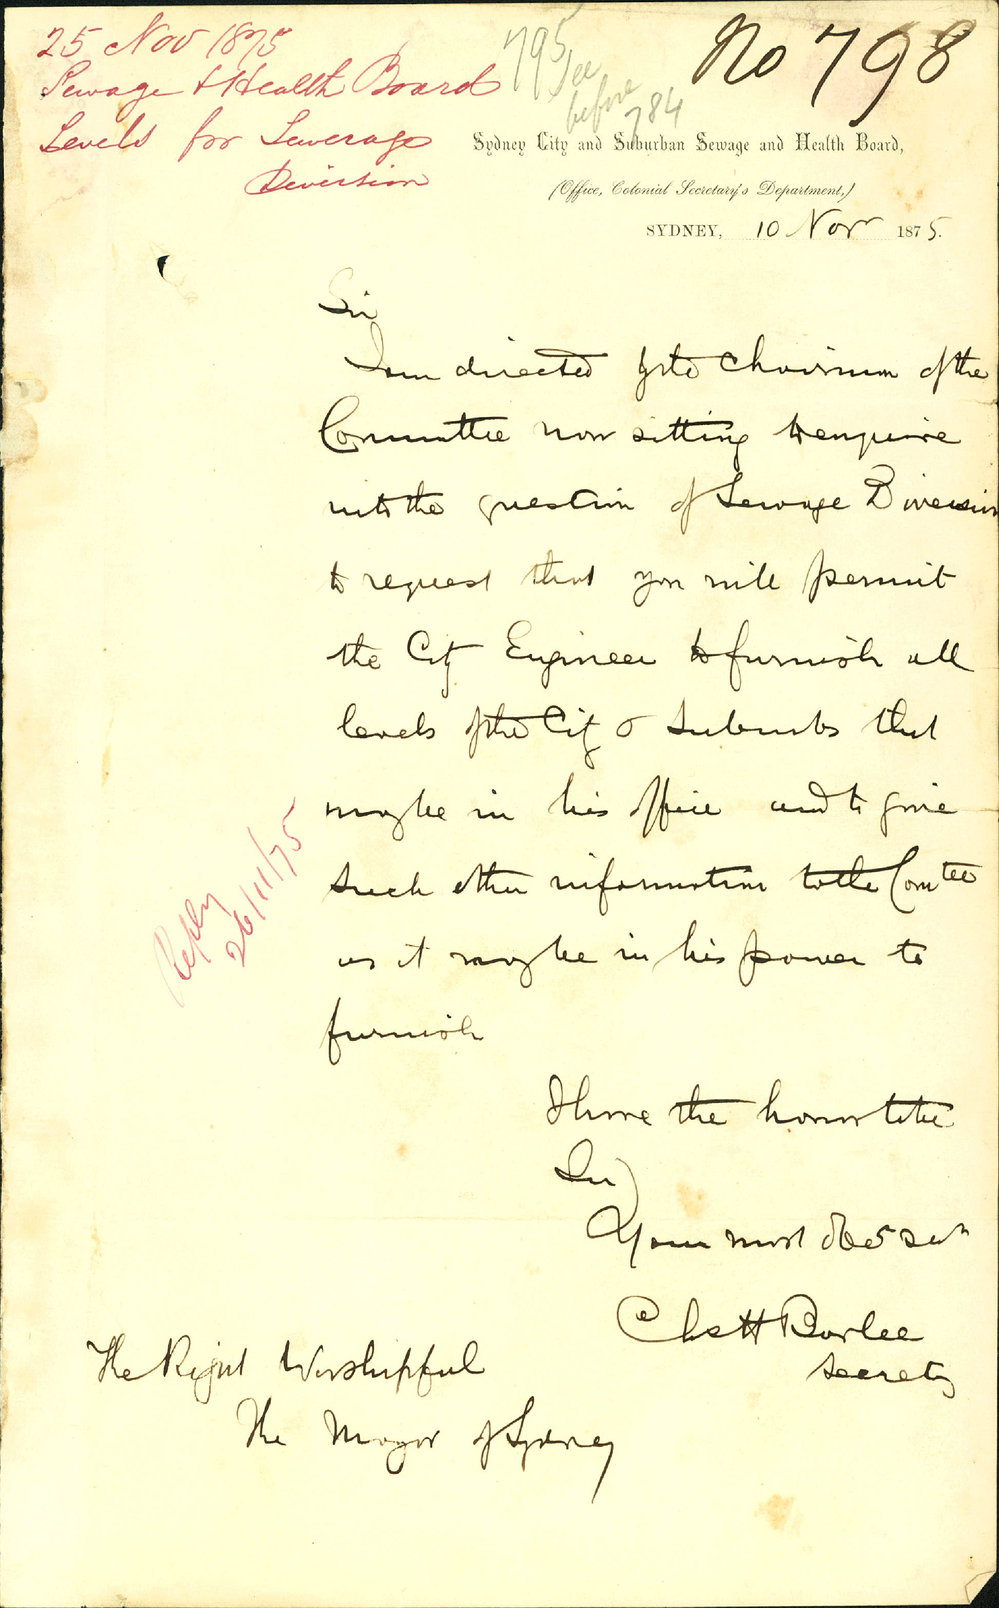 25 Nov 1875
Sewage & Health Board
Levels for Sewerage
Diversion
795
See
before
784
No 798
Sydney City and Suburban Sewage and Health Board,
(Office, Colonial Secretary's Department,)
SYDNEY, 10 Novr 1875.
Sir
I am directed by the Chairman of the
Committee now sitting to enquire
into the question of Sewage Diversion
to request that you will permit
the City Engineer to furnish all
levels of the City & Suburbs that
may be in his office and to give
such other information to the Comtee
as it may be in his power to
furnish
Reply
26/11/75
I have the honor to be
Sir
Your most obedt Servt
Chas H Barlee
Secretary
The Right Worshipful
The Mayor of Sydney